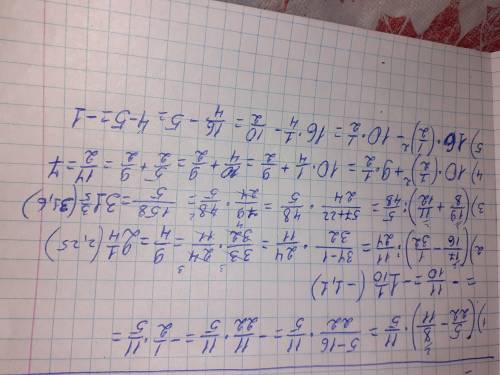 1) (5/22 - 8/11) · 11/5 = (5-16)/22 · 11/5 = -11/22 · 11/5 = -1/2 · 11/5 =
= -11/10 = -1 1/10 (-1,1)
2) (17/16 - 1/32) : 11/24 = (34-1)/32 · 24/11 = 33/32 · 24/11 = 9/4 = 2 1/4 (2,25)
3) (19/8 + 11/12) · 48/5 = (57+22)/24 · 48/5 = 79/24 · 48/5 = 158/5 = 31 3/5 (31,6)
4) 10·(1/2)² + 9·1/2 = 10·1/4 + 9/2 = 10/4 + 9/2 = 5/2 + 9/2 = 14/2 = 7
5) 16·(1/2)² - 10·1/2 = 16·1/4 - 10/2 = 16/4 - 5 = 4-5 = -1